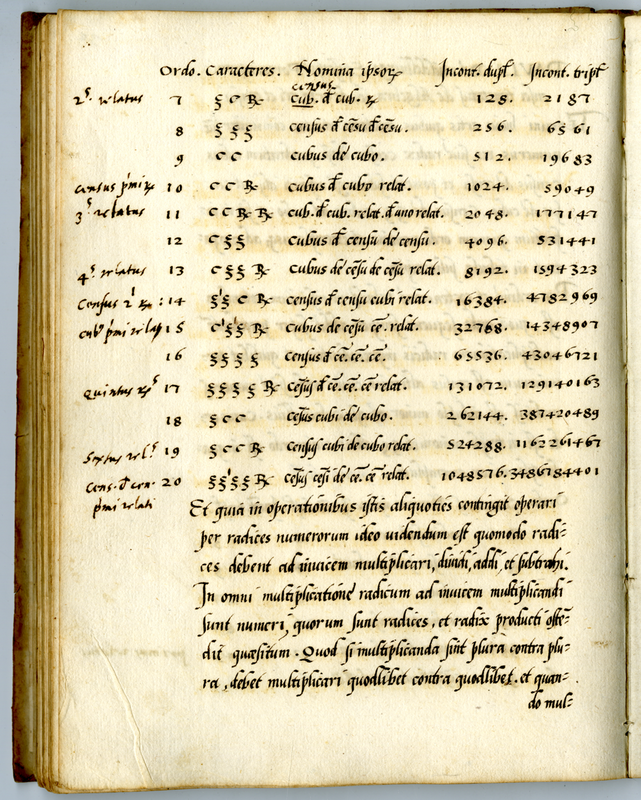 Ordo. Caracteres. Nomina ipsorꝝ Incont. dupl. Incont. tripl
census
2ꝰ. relatus 7 § C ℞ cub. đ cub. ℞ 128. 2187
8 § § § census đ cēsu đ cēsu. 256. 6561
9 C C cubus de cubo. 512. 19683
census pͥmi ℞ 10 C C ℞ cubus đ cubo relat. 1024. 59049
3ꝰ relatus 11 C C ℞ ℞ cub. đ cub. relat. đ uno relat. 2048. 177147
12 C § § cubus đ censu de censu. 4096. 531441
4ꝰ relatus 13 C § § ℞ cubus de cēsu de cēsu relat. 8192. 1594323
Census 2ͥ ℞ : 14 § § C ℞ census đ censu cubi relat. 16384. 4782969
cubꝰ pͥmi relati 15 C § § ℞ cubus de cēsu cē. relat. 32768. 14348907
16 § § § § census đ cē. cē. cē. 65536. 43046721
Quintus ℞ꝰ 17 § § § § ℞ cēsus đ cē. cē. cē relat. 131072. 129140163
18 § C C cēsus cubi de cubo. 262144. 387420489
Sextus relꝰ. 19 § C C ℞ censu cubi de cubo relat. 524288. 1162261467
Cens. đ cen. 20 § § § § ℞ cēsus cēsi de cē. cē relat. 1048576. 3486784401
pͥmi relati
Et quia in operationibus istis aliquoties contingit operari
per radices numerorum ideo uidendum est quomodo radi-
ces debent ad inuicem multiplicari, diuidi, addi, et subtrahi.
In omni multiplicatione radicum ad inuicem multiplicandi
sunt numeri, quorum sunt radices, et radix producti ostē-
dit quæsitum. Quod si multiplicanda sint plura contra plu-
ra, debet multiplicari quodlibet contra quodlibet. et quan-
do mul-